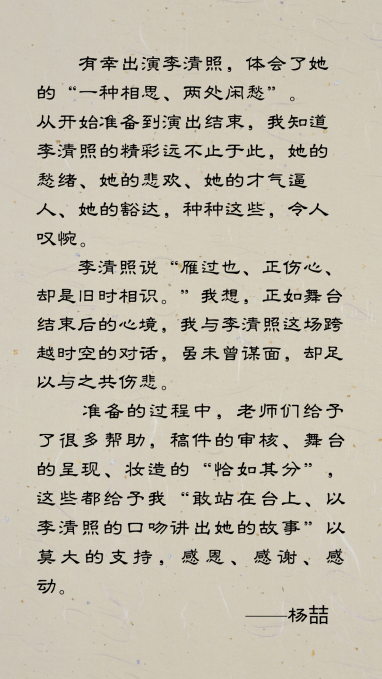 有幸出演李清照，体会了她
的“一种相思、两处闲愁”。
从开始准备到演出结束，我知道
李清照的精彩远不止于此，她的
愁绪、她的悲欢、她的才气逼
人、她的豁达，种种这些，令人
叹惋。
李清照说“雁过也、正伤心、
却是旧时相识。”我想，正如舞台
结束后的心境，我与李清照这场跨
越时空的对话，虽未曾谋面，却足
以与之共伤悲。
准备的过程中，老师们给予
了很多帮助，稿件的审核、舞台
的呈现、妆造的“恰如其分”，
这些都给予我“敢站在台上、以
李清照的口吻讲出她的故事”以
莫大的支持，感恩、感谢、感
动。
——杨喆